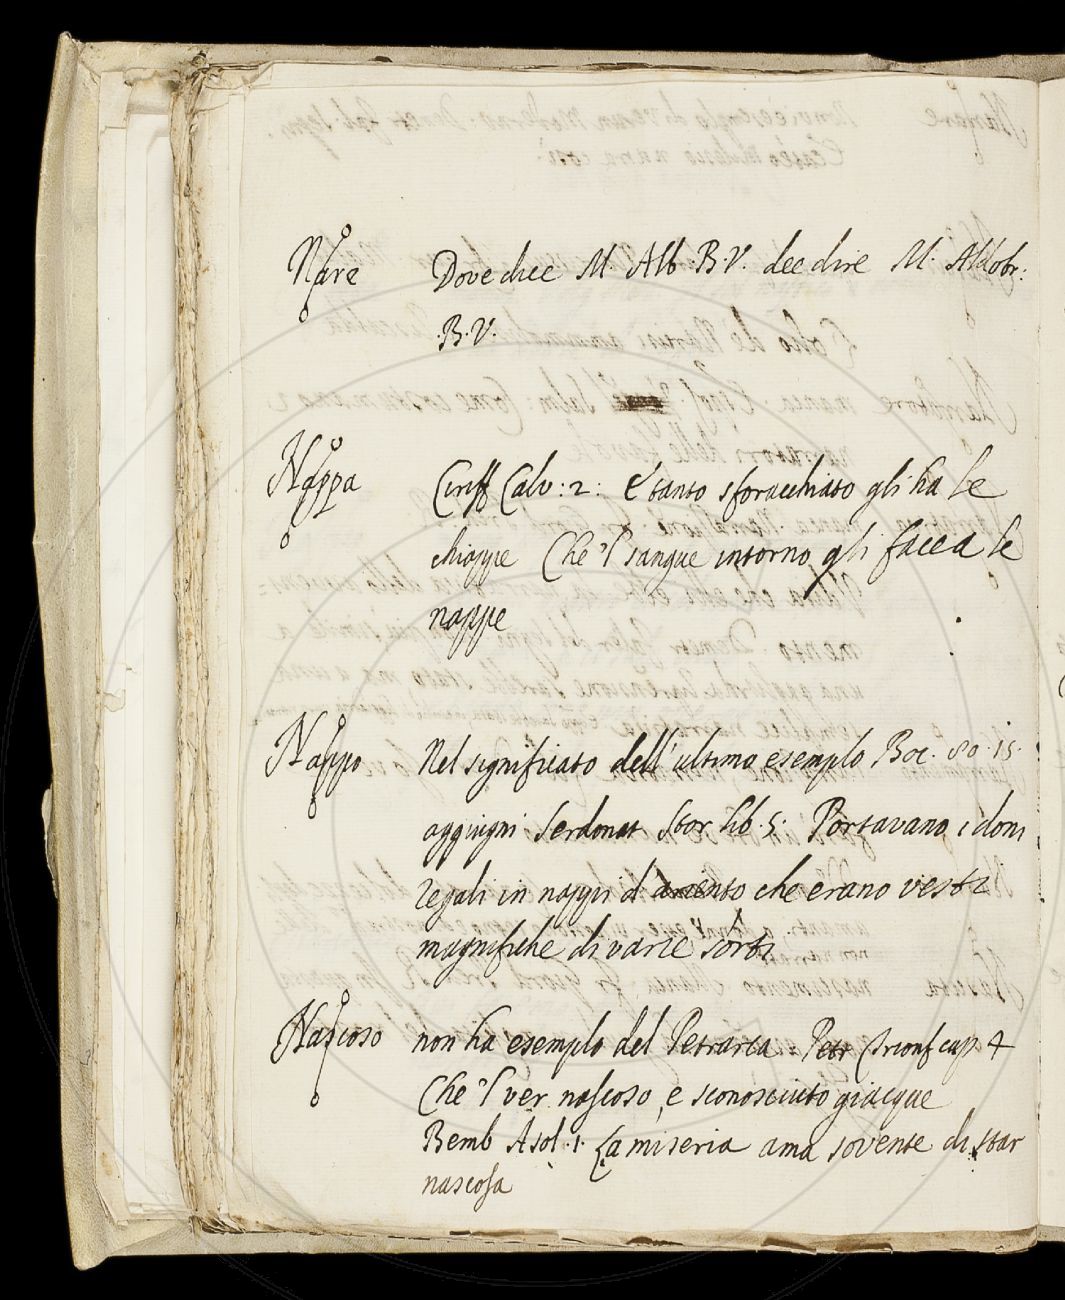 Nare Dove dice M. Alb B. V. dee dire M. Aldobr:
B. V.
Nappa Ciriff Calv: 2: E' tanto sforacchiato gli ha le
chiappe Che 'l sangue intorno gli facea le
nappe
Nappo Nel significato dell'ultimo esemplo Boc. 80. 15.
aggiugni Serdonat Stor lib. 5. Portavano i doni
regali in nappi d'argento che erano vesti
magnifiche di varie sorti
Nascoso non ha esemplo del Petrarca Petr Trionf cap 4
Che 'l ver nascoso, e sconosciuto giacque
Bemb Asol. 1. La miseria ama sovente di star
nascosa